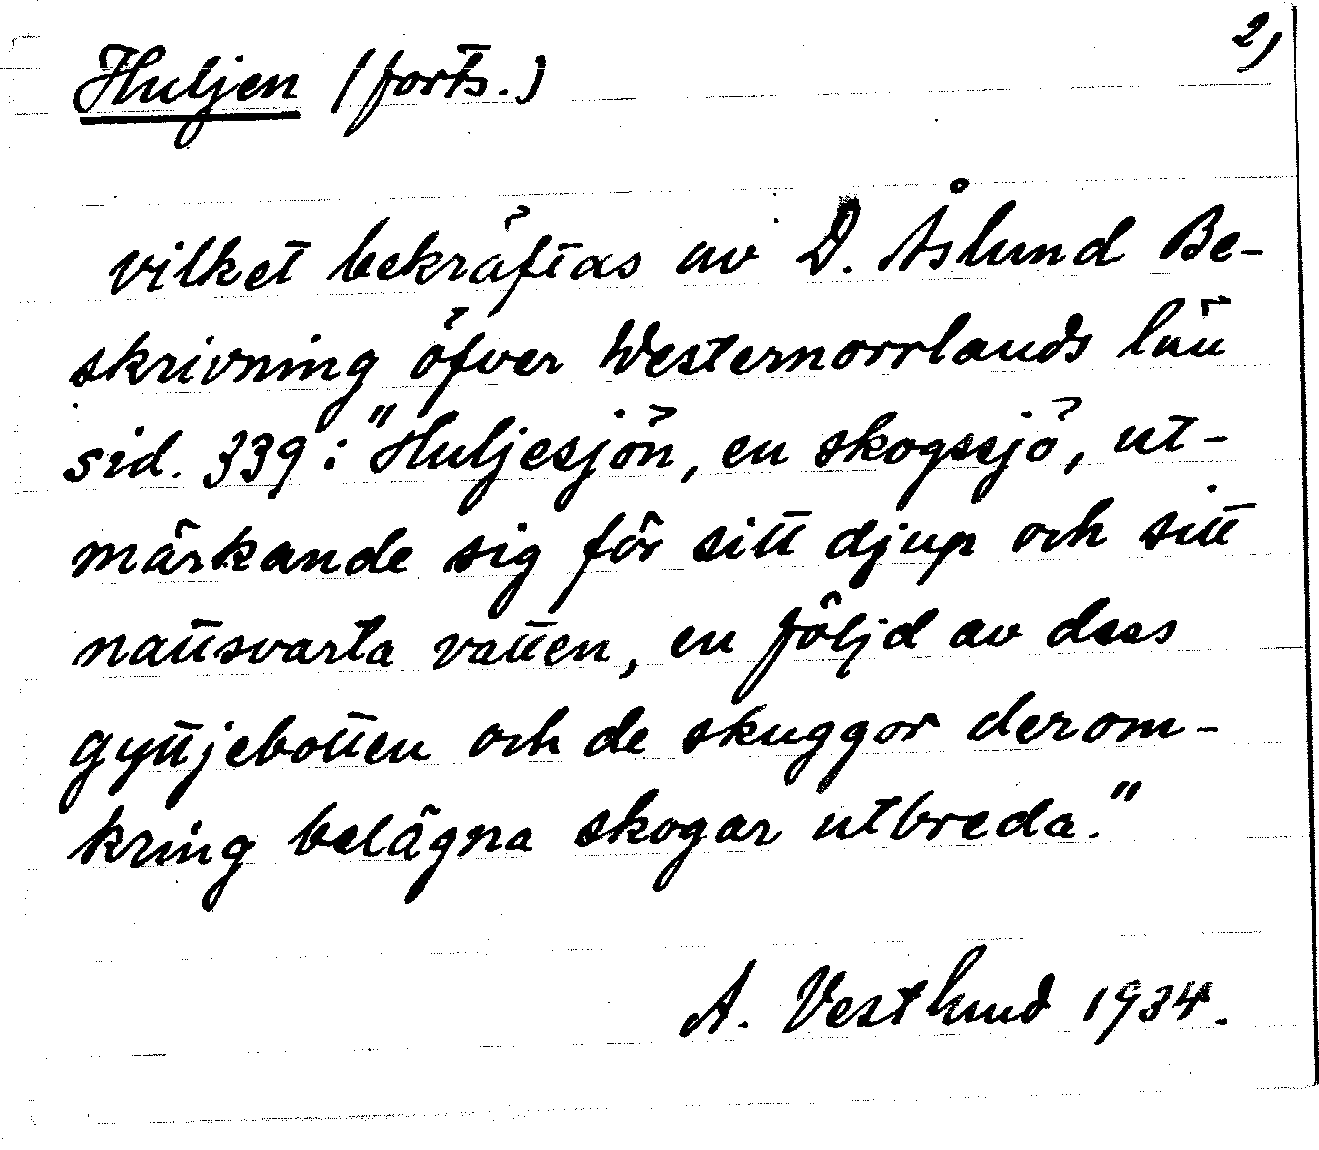 2)
Huljen (forts.)
vilket bekräftas av D. Åslund Be-
skrivning öfver Westernorrlands län
sid. 339: "Huljesjön, en skogssjö, ut-
märkande sig för sitt djup och sitt
nattsvarta vatten, en följd av dess
gyttjebotten och de skuggor derom-
kring belägna skogar utbreda."
A. Vestlund 1934.